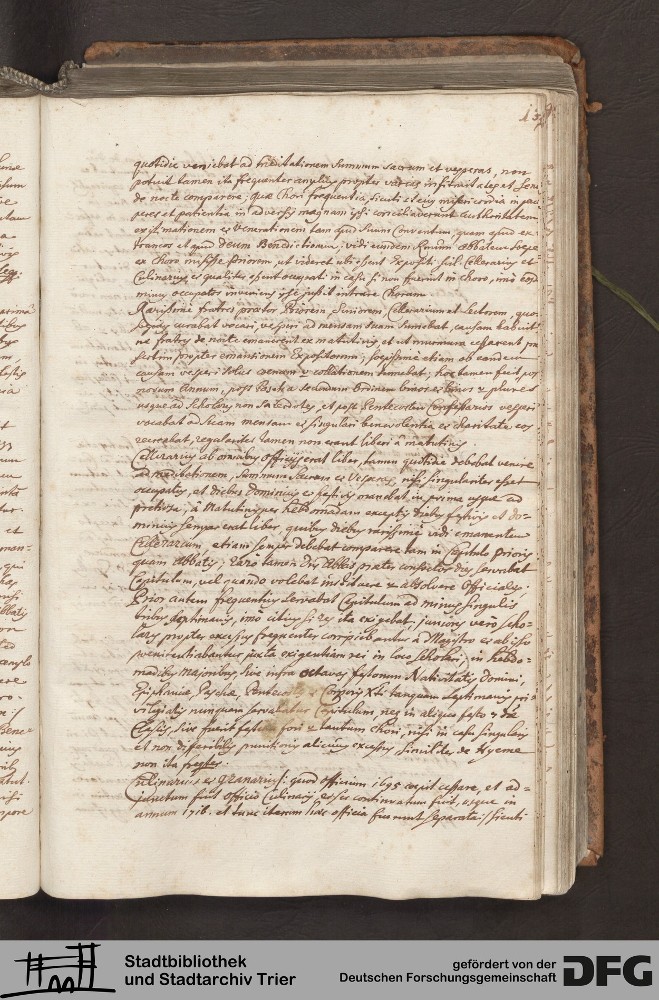 139
quotidie veniebat ad meditationem summum sacrum et vesperas, non
potuit tamen ita frequenter propter vocis infirmitatem et seni
de nocte comparere; quae chori frequentia, sicuti et eius misericordia in pau
peres et patientia in adversis magnam ipsi conciliaverant authoritatem
existimationem et venerationem tam apud suum Conventum, quam apud ex-
traneos et apud Deum Benedictionem; vidi eundem Abbatem saepe
ex choro misisse Priorem ut videret ubi essent Expositi scil. Cellerarius et
Culinarius et qualiter essent occupati in casu si non fuerint in choro, imo eosdem
minus occupatos inveniens ipse jussit intrare chorum.
Rarissime fratres praeter Priorem, Seniorem, Cellerarium et Lectorem, quos
saepius curabat vocari, vesperi ad mensam suam sumebat, causam habuit
ne fratres de nocte emanerent ex matutinis et ut murmura cessarent prae
sertim propter emansionem Expositorum; saepissime etiam ob eandem
causam vesperi solus coenam vel collationem sumebat; hoc tamen fecit post
novum Annum, post Pascha secundum ordinem binos et binos vel plures
usque ad scholares non sacerdotes, et post Pentecosten Confessarios vesperi
vocabat ad suam mensam et singulari benevolentia et charitate eos
recreabat, regalentes tamen non erant liberi a matutinis
Cellerarius ab omnibus officiis erat liber, tamen quotidie debebat venire
ad meditationem, summum Sacrum et Vesperas, nisi singulariter esset
occupatus, at diebus Dominicis et festivis manebat in prima usque ad
pretiosa; a Matutinis per hebdomadam exceptis diebus festivis et do-
minicis semper erat liber, quibus diebus rarissime vidi emanentem
Cellerarium, etiam semper debebat comparere tam in capitulo Prioris
quam Abbatis; raro tamen Dnus Abbas praeter consuetos dies servabat
Capitulum, vel quando volebat instituere vel absolvere Officiales,
Prior autem frequentius servabat Capitulum ad minus singulis
tribus septimanis, imo citius si res ita exigebat. juniores vero scho-
lares propter excessus frequenter corripiebantur a Magistro et ab ipso
poenitentiabantur juxta exigentiam rei in loco scholari, in hebdo-
madibus Majoribus, sive infra octavas festorum Nativitatis Domini,
Epiphaniae, Paschae, Pentecostes, Corporis Xti tanquam septimanis pri-
vilegiatis nunquam servabatur Capitulum, nec in aliquo festo
Capis, sive fuerit festum fori vel tantum chori, nisi in casu singularis
et non differibilis punitionis alicuius excessus similiter de Hyeme
non ita frequenter.
Culinarius et Granarius /: quod officium 1695 coepit cessare, et ad-
junctum fuit officio Culinarii et sic continuatum fuit, usque in
annum 1716. et tunc iterum haec officia fuerunt separata :/ sicuti
Stadtbibliothek
und Stadtarchiv Trier
gefördert von der
Deutschen Forschungsgemeinschaft
DFG